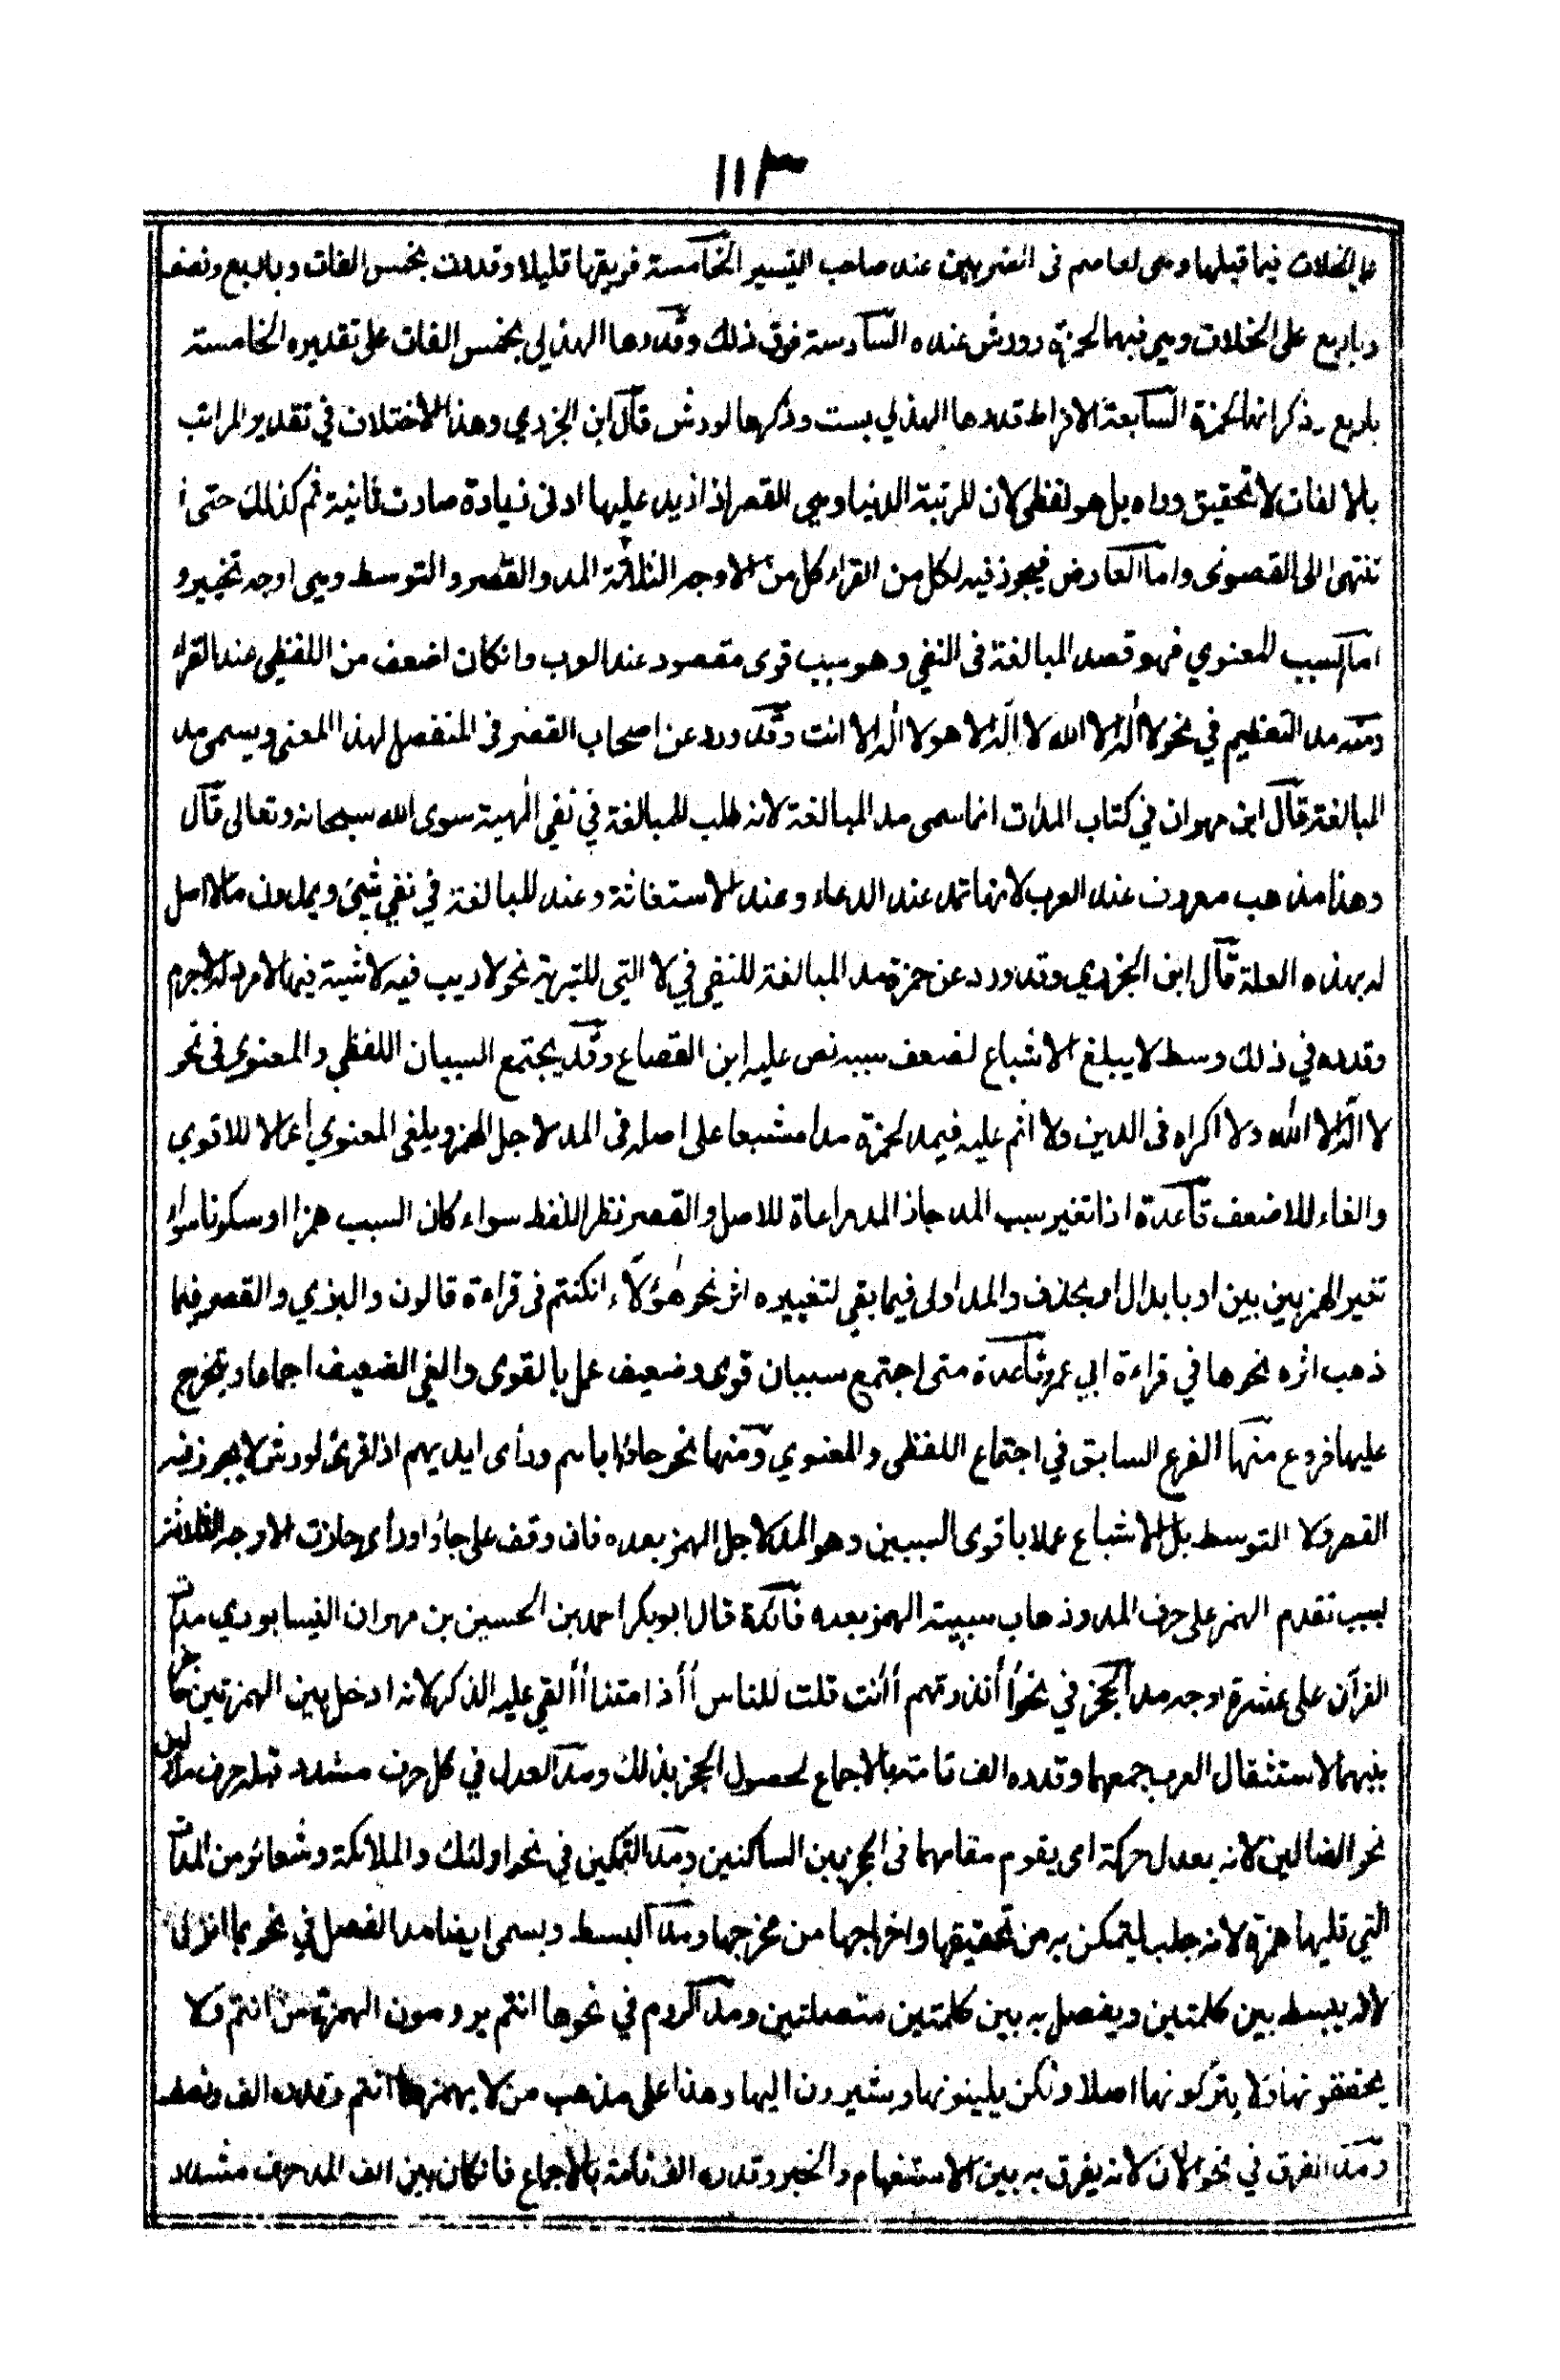 ١١٣
على الخلاف فيما قبلها وهى لعاصم فى الضربين عند صاحب التيسير الخامسة فويقها قليلا وقدرت بخمس الفات وباربع ونصف
وباربع على الخلاف وهى فيهما لحمزة وورش عنده السادسة فوق ذلك وقدرها الهذلي بخمس الفات على تقديره الخامسة
باربع وذكر انها لحمزة السابعة الافراط قدرها الهذلي بست وذكرها لورش قال ابن الجزري وهذا الاختلاف في تقدير المراتب
بالالفات لا تحقيق وراه بل هو لفظى لان المرتبة الدنيا وهى القصر اذا زيد عليها ادنى زيادة صارت ثانية ثم كذلك حتى
تنتهى الى القصوى واما العارض فيجوز فيه لكل من القراء كل من الاوجه الثلاثة المد والقصر والتوسط وهى اوجه تخيير و
اما السبب المعنوي فهو قصد المبالغة فى النفي وهو سبب قوى مقصود عند العرب وانكان اضعف من اللفظي عند القراء
ومنه مد التعظيم في نحو لا اله الا الله لا اله الا هو لا اله الا انت وقد ورد عن اصحاب القصر فى المنفصل لهذا المعنى ويسمى مد
المبالغة قال ابن مهران في كتاب المدات انما سمى مد المبالغة لانه طلب للمبالغة في نفي الٰهية سوى الله سبحانه وتعالى قال
وهذا مذهب معروف عند العرب لانها تمد عند الدعاء وعند الاستغاثة وعند المبالغة في نفي شيئ ويمدون مالا اصل
له بهذه العلة قال ابن الجزري وقد ورد عن حمزة مد المبالغة للنفي في لا التي للتبرية نحو لا ريب فيه لا شية فيها لا مرد له لا جرم
وقدره في ذلك وسط لا يبلغ الاشباع لضعف سببه نص عليه ابن القصاع وقد يجتمع السببان اللفظي والمعنوي فى نحو
لا اله الا الله ولا اكراه فى الدين ولا اثم عليه فيمد لحمزة مدا مشبعا على اصله فى المد لاجل الهمز ويلغى المعنوي اعمالا للاقوى
والغاء للاضعف قاعدة اذا تغير سبب المد جاز المد مراعاة للاصل والقصر نظر اللفظ سواء كان السبب همزا او سكونا سواء
تغير الهمز ببين بين او بابدال او بحذف والمد اولى فيما بقي لتغييره اثر نحو هٰؤلاء انكنتم فى قراءة قالون والبزي والقصر فيما
ذهب اثره نحوها في قراءة ابي عمرو قاعدة متى اجتمع سببان قوى وضعيف عمل بالقوى والغى الضعيف اجماعا ويتخرج
عليها فروع منها الفرع السابق في اجتماع اللفظى والمعنوي ومنها نحو جاؤا اباهم ورأى ايديهم اذا قرئ لورش لا يجوز فيه
القصر ولا التوسط بل الاشباع عملا باقوى السببين وهو المد لاجل الهمز بعده فان وقف على جاؤا او رأى جازت الاوجه الثلاثة
بسبب تقدم الهمز على حرف المد وذهاب سببية الهمز بعده فائدة قال ابو بكر احمد بن الحسين بن مهران النيسابوري مدات
القرآن على عشرة اوجه مد الحجز في نحو أأنذرتهم أأنت قلت للناس أأذا متنا أألقي عليه الذكر لانه ادخل بين الهمزتين حاجزا
بينهما لاستثقال العرب جمعهما وقدره الف تامة بالاجماع لحصول الحجز بذلك ومد العدل في كل حرف مشدد قبله حرف مد ولين
نحو الضالين لانه يعدل حركة اى يقوم مقامها فى الحجز بين الساكنين ومد التمكين في نحو اولئك والملائكة وشعائر من المدات
التي تليها همزة لانه جلب ليتمكن به من تحقيقها واخراجها من مخرجها ومد البسط ويسمى ايضا مد الفصل في نحو بما انزل
لانه يبسط بين كلمتين ويفصل به بين كلمتين متصلتين ومد الروم في نحو ها انتم يرومون الهمزة من انتم ولا
يحققونها ولا يتركونها اصلا ولكن يلينونها ويشيرون اليها وهذا على مذهب من لا يهمز ها انتم وقدره الف ونصف
ومد الفرق في نحو الان لانه يفرق به بين الاستفهام والخبر وقدره الف تامة بالاجماع فانكان بين الف المد حرف مشدد